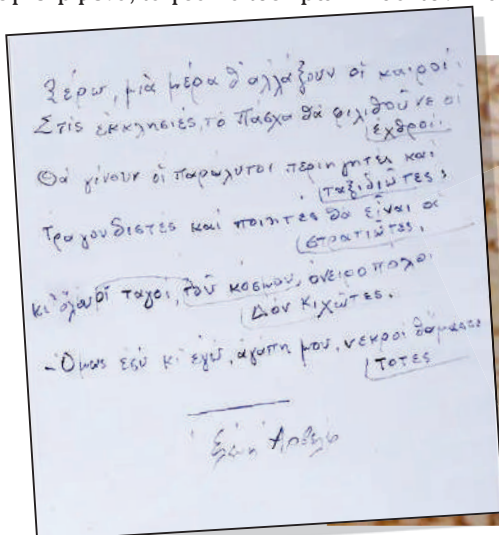 Ξέρω, μιὰ μέρα θ' ἀλλάξουν οἱ καιροί.
Στὶς ἐκκλησιές, τὸ Πάσχα θὰ φιληθοῦνε οἱ
ἐχθροί.
Θὰ γίνουν οἱ παράλυτοι περιηγητὲς καὶ
ταξιδιῶτες,
τραγουδιστὲς καὶ ποιητὲς θὰ εἶναι οἱ
στρατιῶτες,
κι' ὅλοι οἱ ταγοί, τοῦ κόσμου, ὀνειροπόλοι
Δὸν Κιχῶτες.
- Ὅμως ἐσὺ κι' ἐγώ, ἀγάπη μου, νεκροὶ θἄμαστε
τότες